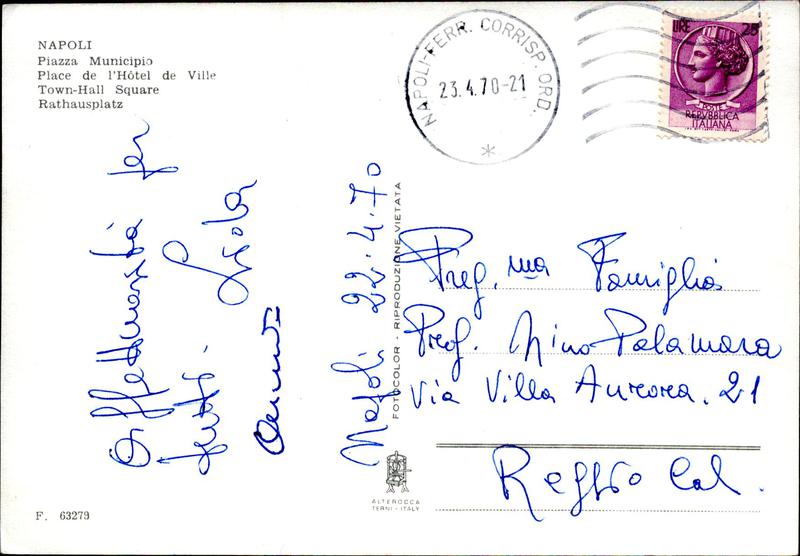 NAPOLI
Piazza Municipio
Place de l'Hôtel de Ville
Town-Hall Square
Rathausplatz
NAPOLI-FERR. CORRISP. ORD.
23.4.70-21
LIRE 25
POSTE
REPVBBLICA
ITALIANA
Affettuosità per
tutti.
Napoli 22.4.70
FOTOCOLOR - RIPRODUZIONE VIETATA
Preg.ma Famiglia
Prof. Nino Palamara
Via Villa Aurora. 21
Reggio Cal.
ALTEROCCA
TERNI - ITALY
F. 63279